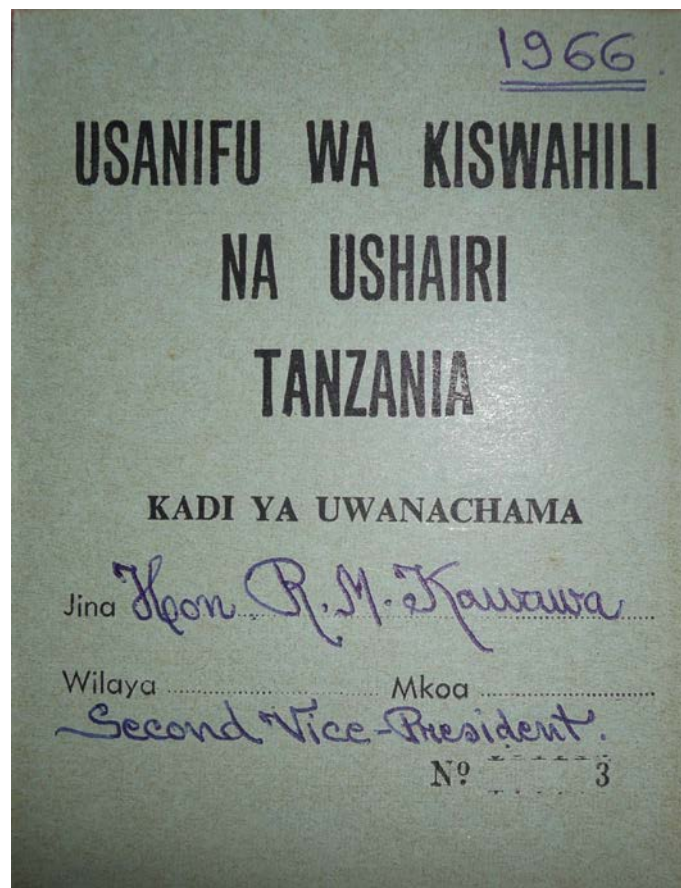 1966.
USANIFU WA KISWAHILI
NA USHAIRI
TANZANIA
KADI YA UWANACHAMA
Jina Hon. R. M. Kawawa
Wilaya Mkoa
Second Vice-President.
Nº 3